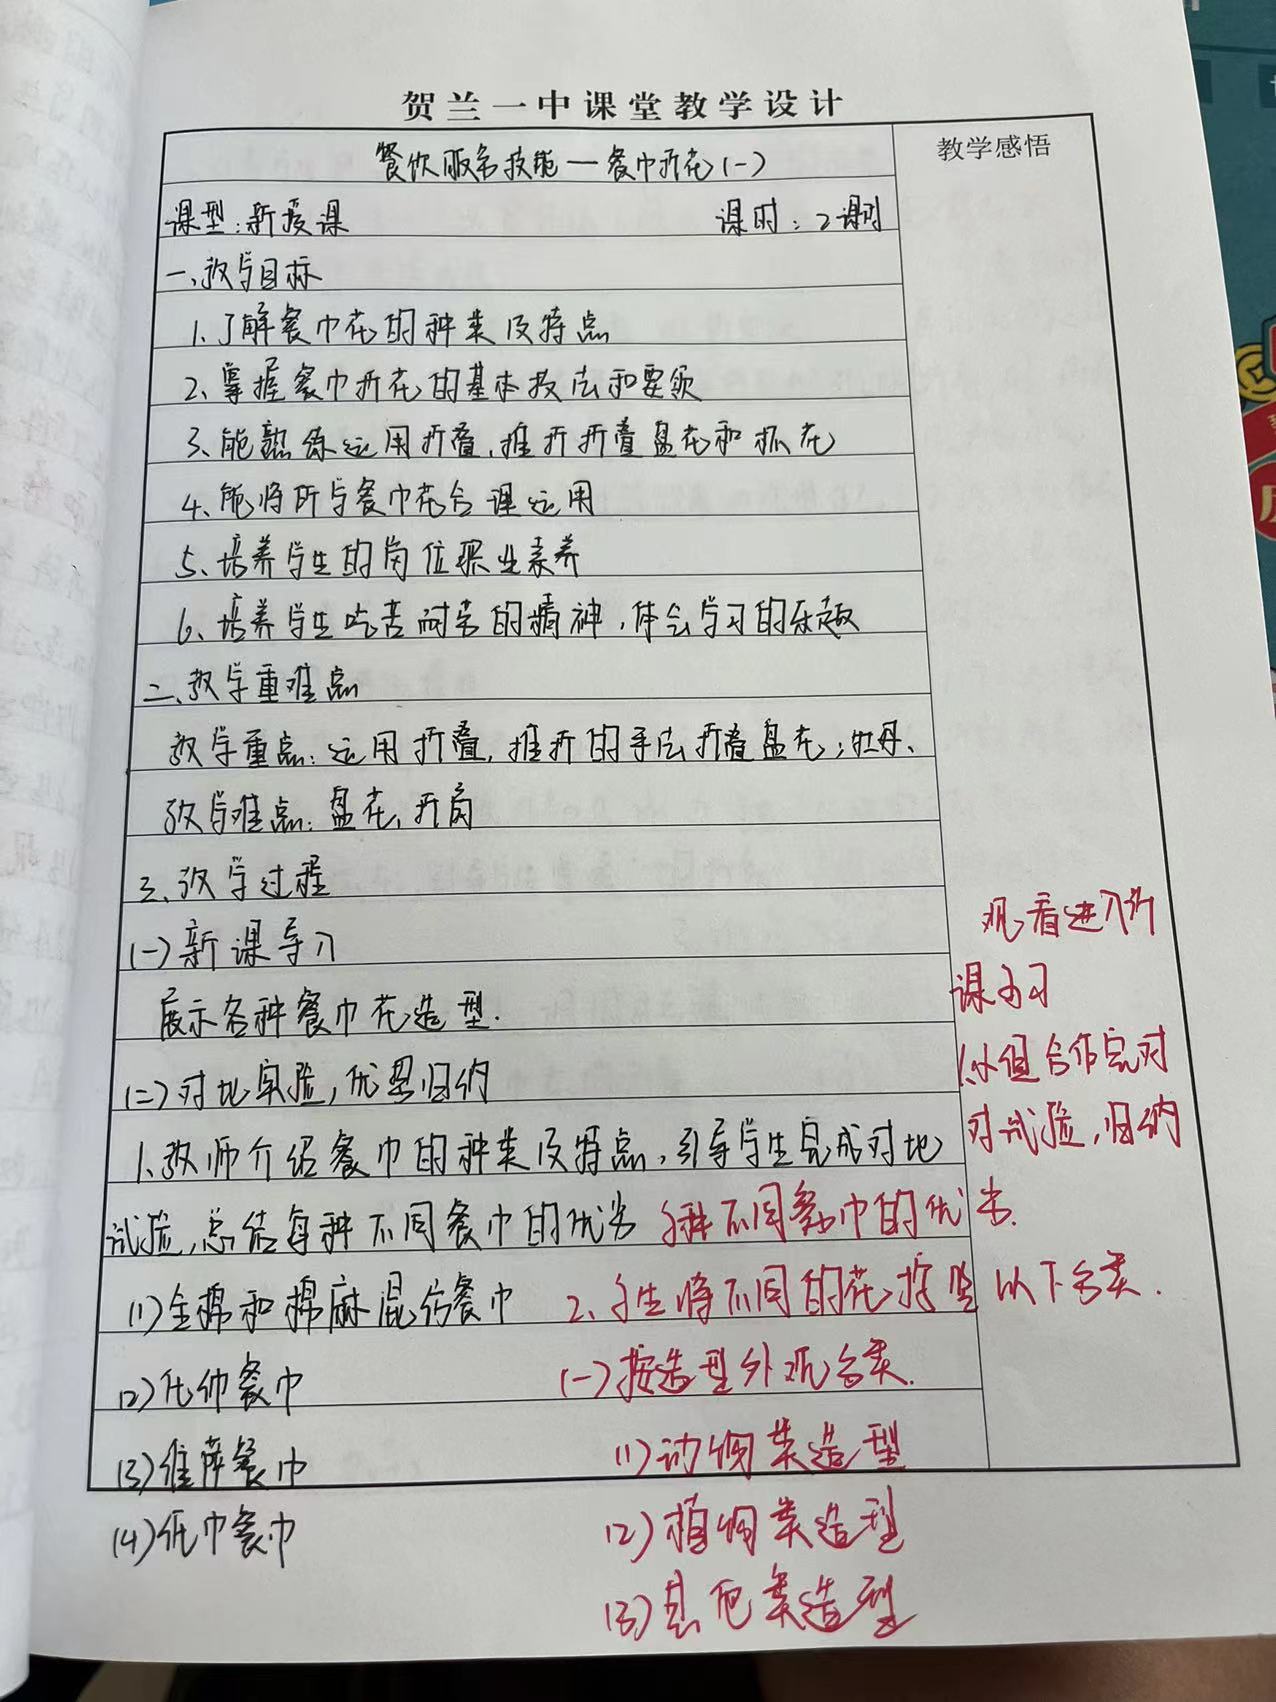 贺兰一中课堂教学设计
教学感悟
餐饮服务技能—餐巾折花(一)
课型:新授课 课时:2课时
一、教学目标
1.了解餐巾花的种类及特点
2、掌握餐巾折花的基本技法和要领
3、能熟练运用折叠,推折折叠盘花和杯花
4、能将所学餐巾花合理运用
5、培养学生的岗位职业素养
6、培养学生吃苦耐劳的精神,体会学习的乐趣
二、教学重难点
教学重点:运用折叠,推折的手法折叠盘花;牡丹、
教学难点:盘花,开
三、教学过程
(一)新课导入
展示各种餐巾花造型.
(二)对比实验,优劣归纳
1、教师介绍餐巾的种类及特点,引导学生完成对比
试验,总结每种不同餐巾的优劣
(1)全棉和棉麻混纺餐巾
(2)化纤餐巾
(3)维萨餐巾
(4)纸巾餐巾
观看进入新
课学习
1.小组合作完对
对试验,归纳
每种不同餐巾的优劣.
2.学生将不同的花按照以下分类.
(一)按造型外观分类.
(1)动物类造型
(2)植物类造型
(3)其他类造型